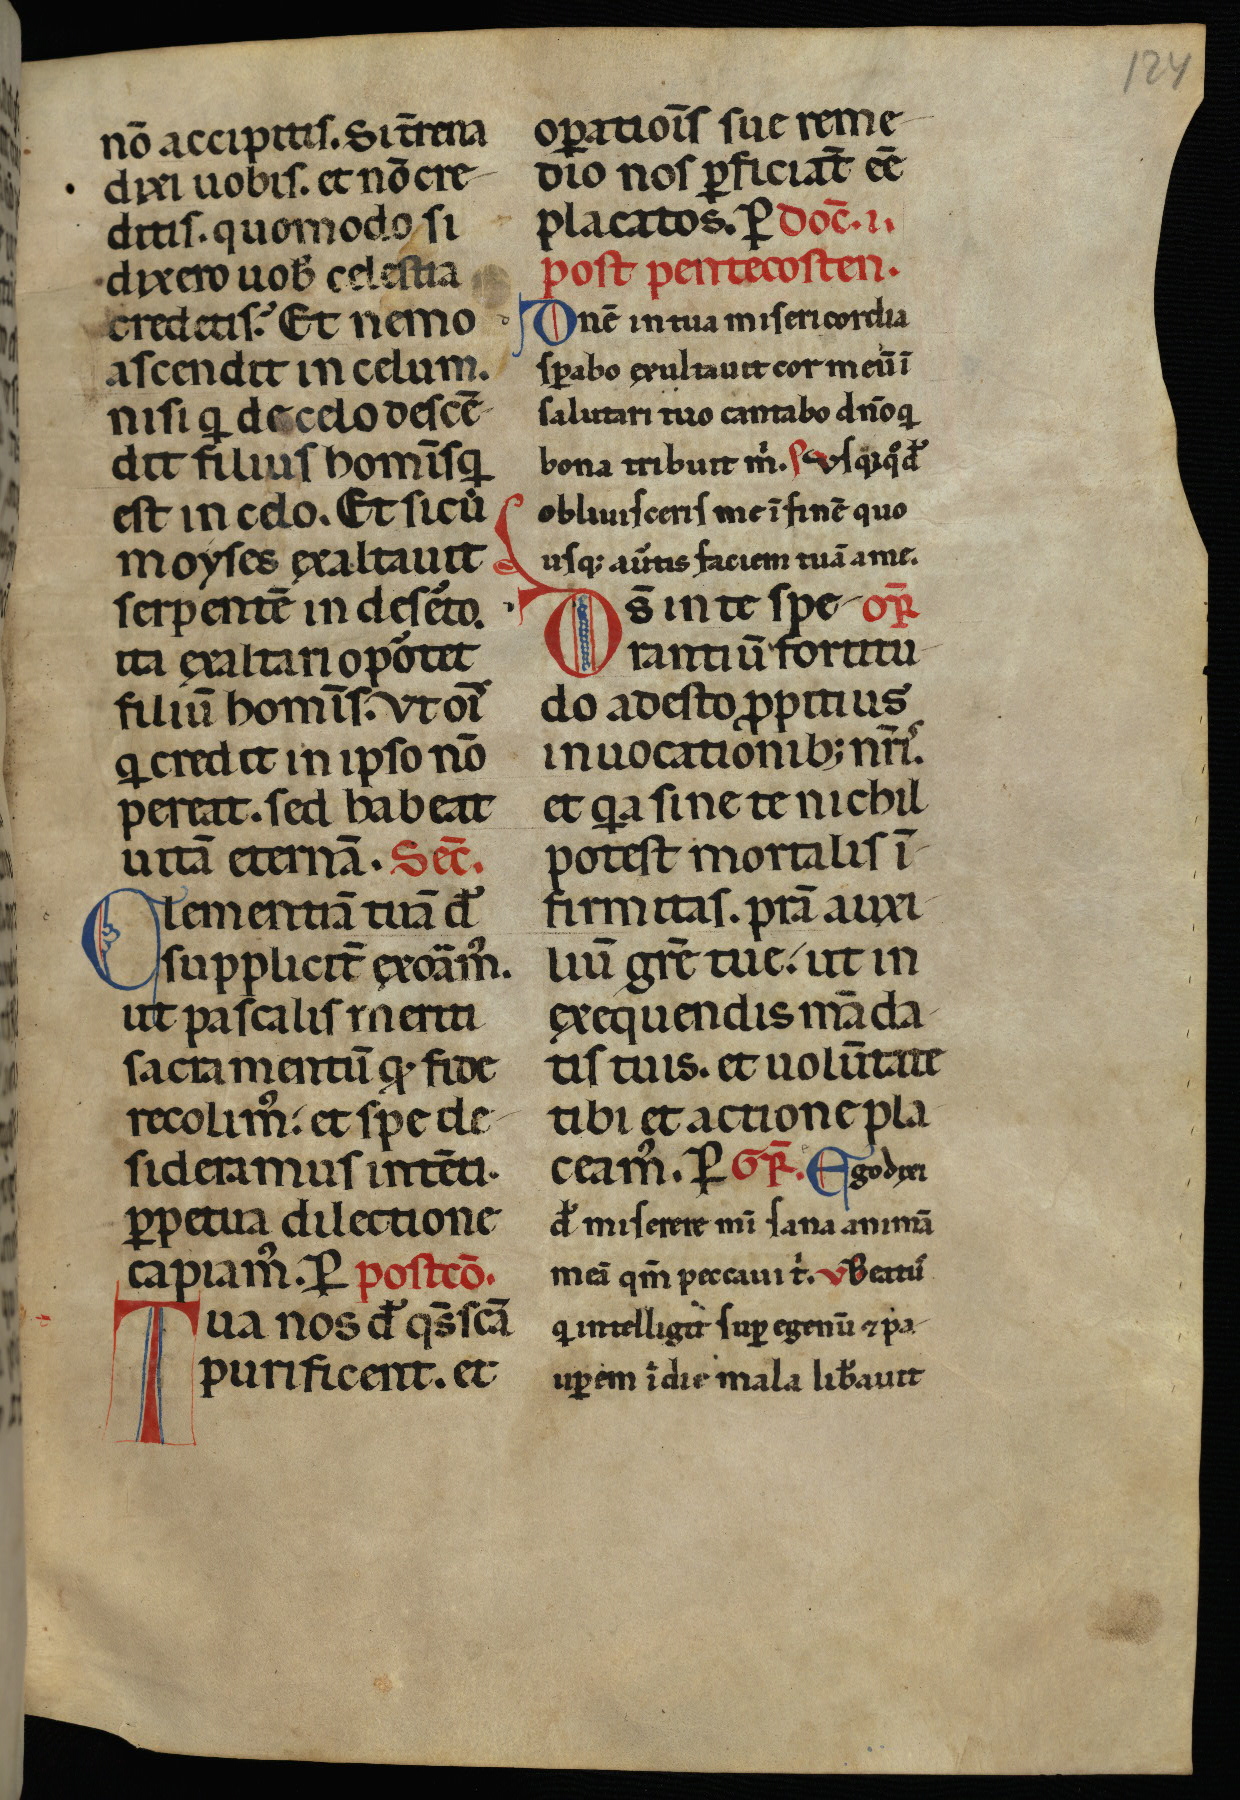 124
nō accipitis. Si t̄rena
dixi uobis. et nō cre-
ditis. quomodo si
dixero uob̄ celestia
credetis? Et nemo
ascendit in celum.
nisi q̇ de celo descē-
dit filius hom̄is q̇
est in celo. Et sicū
moyses exaltauit
serpentē in deseto.
ita exaltari opotet
filiū hom̄is. ut oīs
q̇ credit in ipso nō
pereat. sed habeat
uitā eternā. Sec̄.
Clementiā tuā d̄s
supplicit̄ exoam̄.
ut pascalis muneri
sacramentū q̇ fide
recolim̄. et spe de-
sideramus intēti.
ꝑpetua dilectione
capiam̄. P̄ postcō.
Tua nos d̄s q̄s sc̄a
purificent. et
oꝑatiōis sue reme-
dio nos ꝑficiat̄ eē
placatos. P̄ Doc̄. i.
post pentecosten.
Dnē in tua misericordia
sꝑabo exultauit cor meū ī
salutari tuo cantabo dn̄o q̇
bona tribuit m̄. Ps Usq̄quo d̄ne
obliuisceris me ī finē quo
usq; au̅tis faciem tuā a me.
Ds̄ in te spe- Or̄
rantiū fortitu
do adesto ꝓpitius
inuocationib; nr̄is.
et q̇a sine te nichil
potest mortalis ī-
firmitas. pr̄a auxi
liū gr̄e tue. ut in
exequendis māda
tis tuis. et uolūtate
tibi et actione pla
ceam̄. P̄ Gr̄. Ego dixi
d̄ne miserere mī sana animā
meā qm̄ peccaui t̄. V Beatus
q̇ intelligit suꝑ egenū ⁊ pa-
uꝑem ī die mala lib̄auit